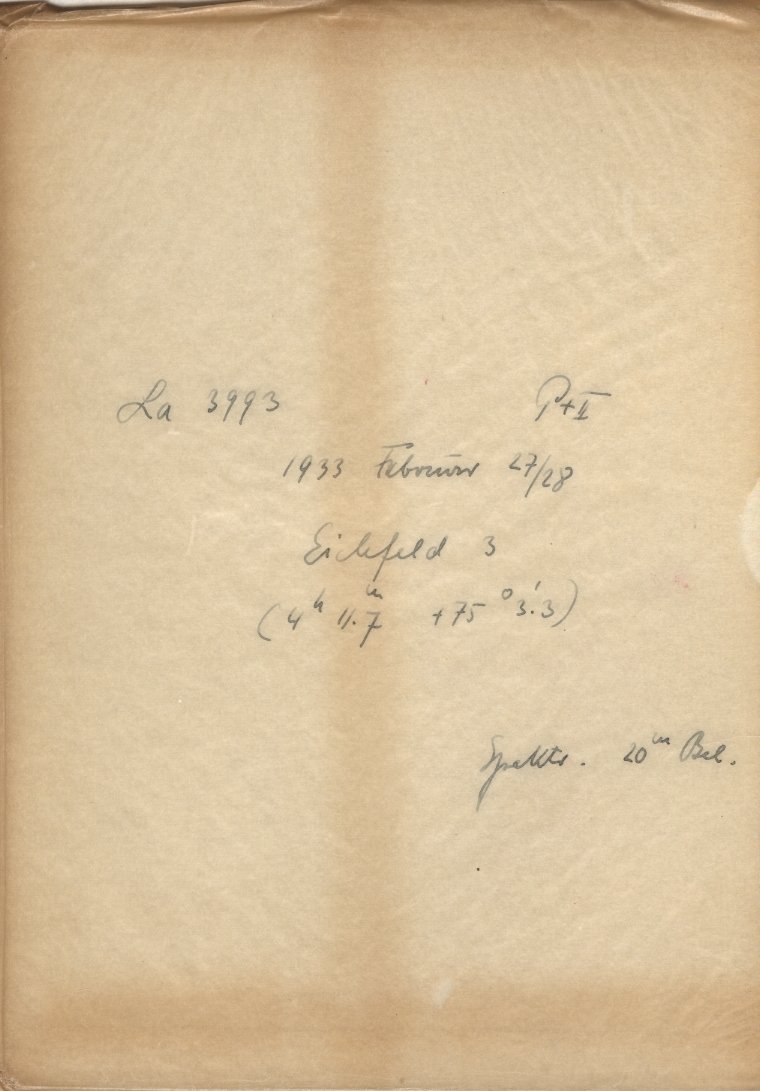 La 3993 P+II
1933 Februar 27/28
Eichfeld 3
(4ʰ 11.7ᵐ +75° 3.'3)
Spektr. 20ᵐ Bel.